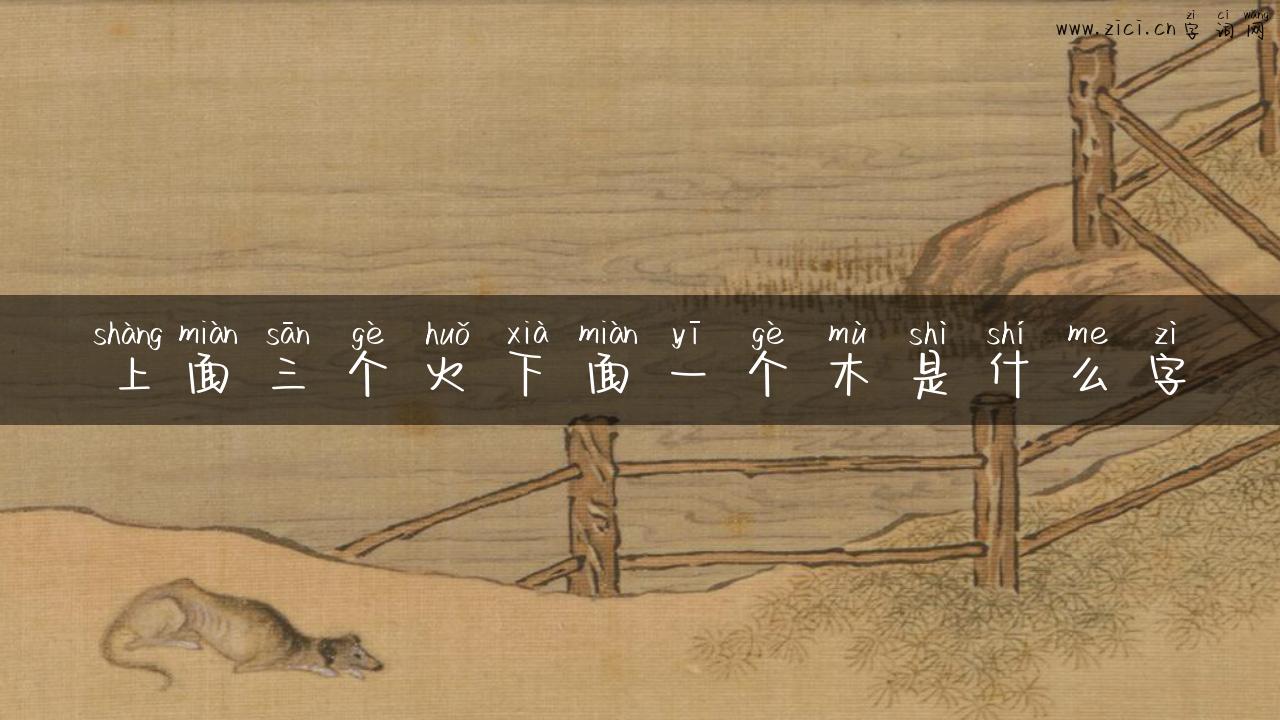 zì cí wǎng
www.zici.cn 字词网
shàng miàn sān gè huǒ xià miàn yī gè mù shì shí me zì
上面三个火下面一个木是什么字